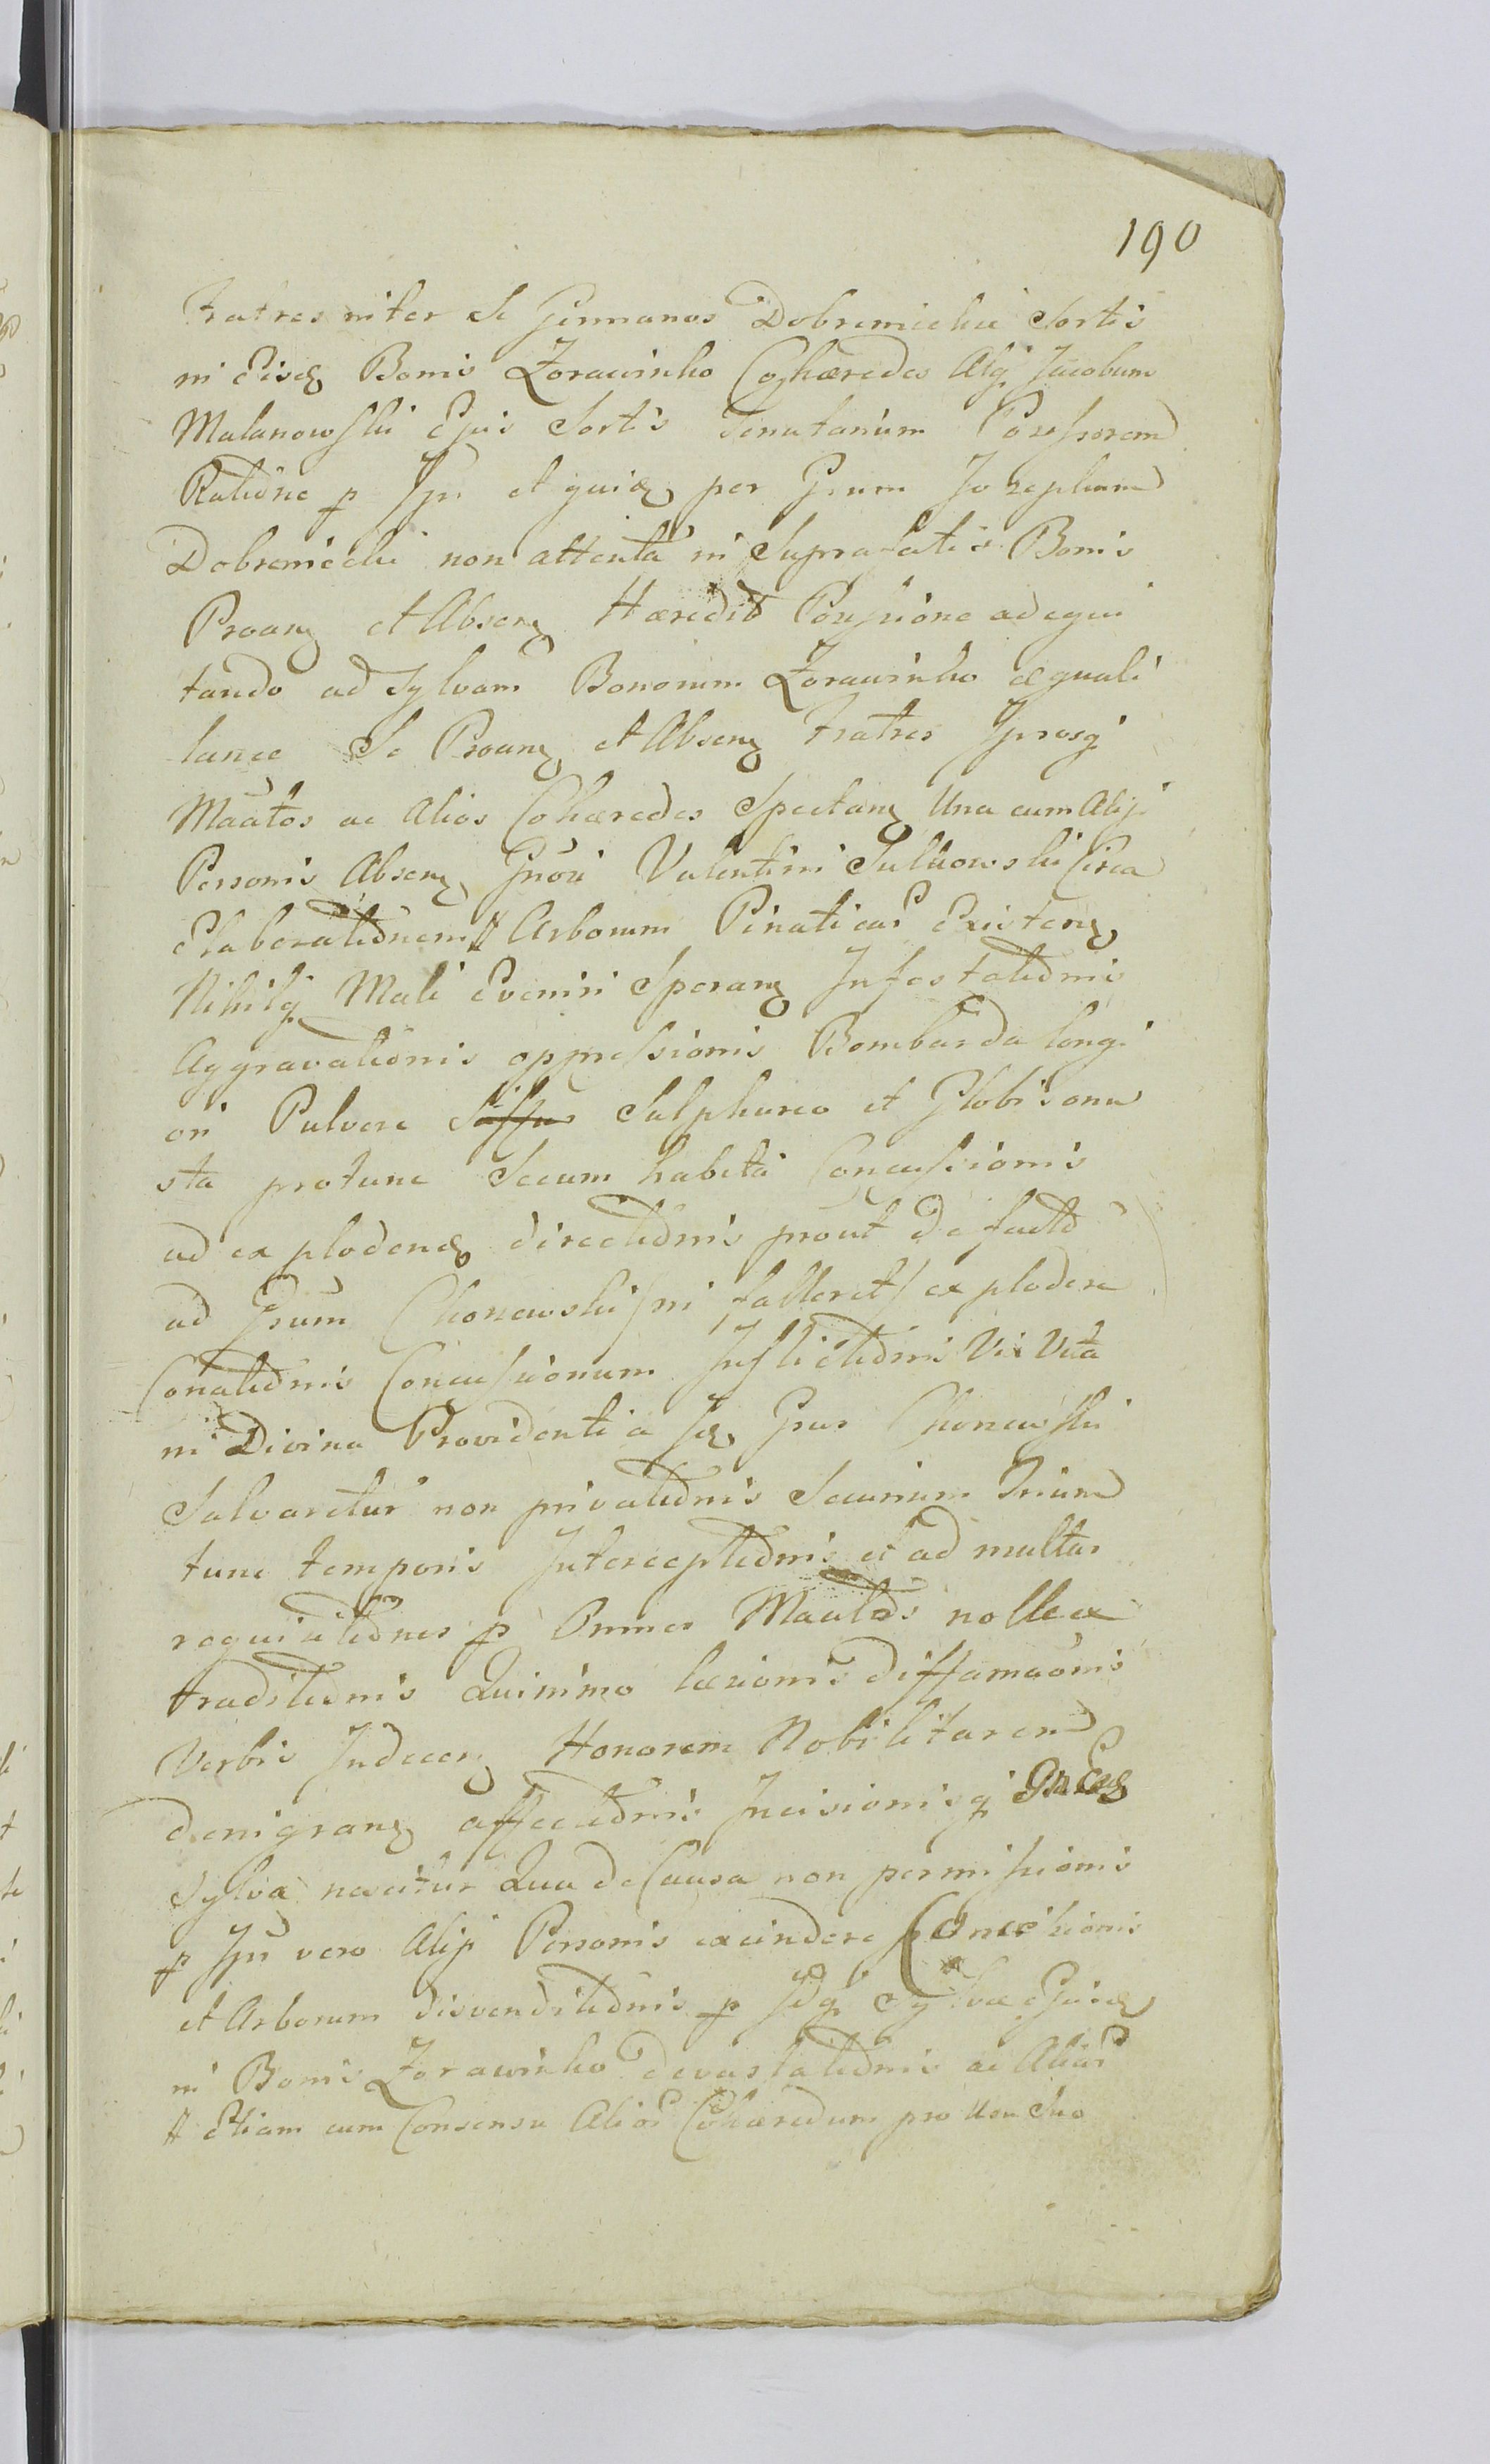 190
Fratres inter Se Germanos Dobromieckie Sortis
in Eisdē Bonis Zorawinko Cohæredes Alq Jacobum
Malanowski Ejus Sortis Tenutarium Possessorem
Ratione p Ipū et quidē per Grum Josephum
Dobromiecki non attenta in Suprafatis Bonis
Proanē et Absenē Hæredit Possessione adequi
tando ad Sylvam Bonorum Zorawinko æquali
lance Se Proanē et Absenē Fratres Iprosq
Maātos ac Alios Cohæredes Spectanē Una cum Alijs
Personis Absenē Gnōsi Valentini Sulkowski Circa
Elaborationem # Arborum Pinaticar Existenē
Nihilq Mali Eveniri Speranē Infestationis
Aggravationis oppressionis Bombarda longi
ori Pulvere Sulphureo et Globis onu
sta protunc Secum habita Concussionis
ad explodenē directionis prout de facto
ad Grum Chonowski /ni falleret/ explodere
Conationis Concussionum Inflictionis Vi Vita
ni Divina Providentia Idē Grus Chonowski
Salvaretur non privationis Securium Trium
tunc temporis Interceptionis et ad multas
requisitiones p Omnes Maātos nolle ex
traditionis Quinimo læsionis diffamaōnis
Verbis Indecenē Honorem Nobilitarem
denigranē affectionis Incisionisq
Sylvæ nescitur Qua de Causa non permissionis
p Ipū vero Alijs Personis excindere Concessionis
et Arborum disvenditionis p Idq Sylvæ Ejusdē
in Bonis Zorawinko devastationis ac Aliar
# Etiam cum Consensu Alior Cohæredum pro Usu Suo